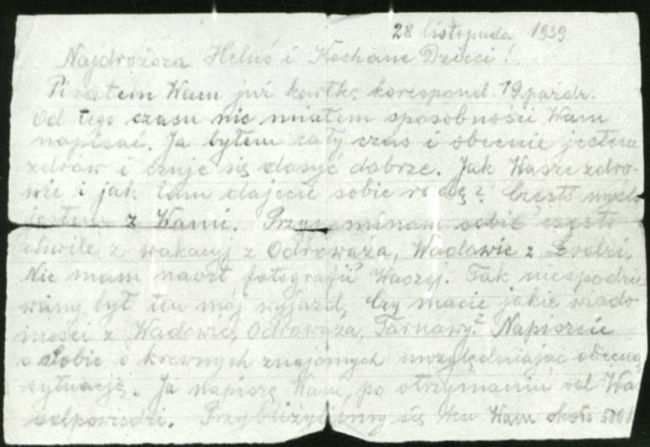 28 listopada 1939.
Najdroższa Heluś i Kochane Dzieci!
Pisałem Wam już kartkę korespond. 19 paźdz.
Od tego czasu nie miałem sposobności Wam
napisać. Ja byłem cały czas i obecnie jestem
zdrów i czuję się dosyć dobrze. Jak Wasze zdro-
wie i jak tam dajecie sobie radę? Często myślą
jestem z Wami. Przypominam sobie często
chwile z wakacyj z Odrowąża, Wadowic z Łodzi.
Nie mam nawet fotografii Waszyj. Tak niespodzie
wany był ten mój wyjazd. Czy macie jakie wiado
mości z Wadowic, Odrowąża, Tarnawy? Napiszcie
o Sobie o krewnych znajomych uwzględniając obecną
sytuację. Ja napiszę Wam, po otrzymaniu od Was
odpowiedzi. się ku Wam około 500